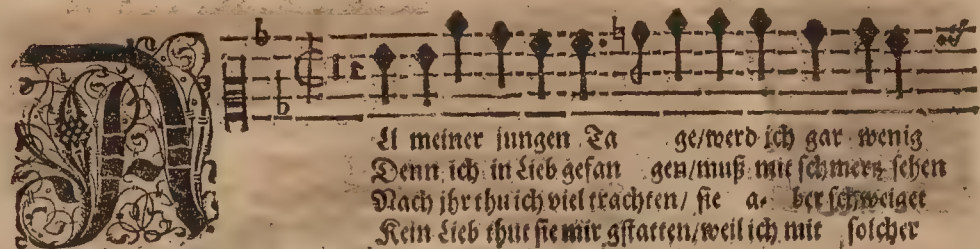 ALl meiner jungen Ta ge/werd ich gar wenig
Denn ich in Lieb gefan gen/muß mit schmertz sehen
Nach jhr thu ich viel trachten/ sie a- ber schweiget
Kein Lieb thut sie mir gstatten/weil ich mit solcher